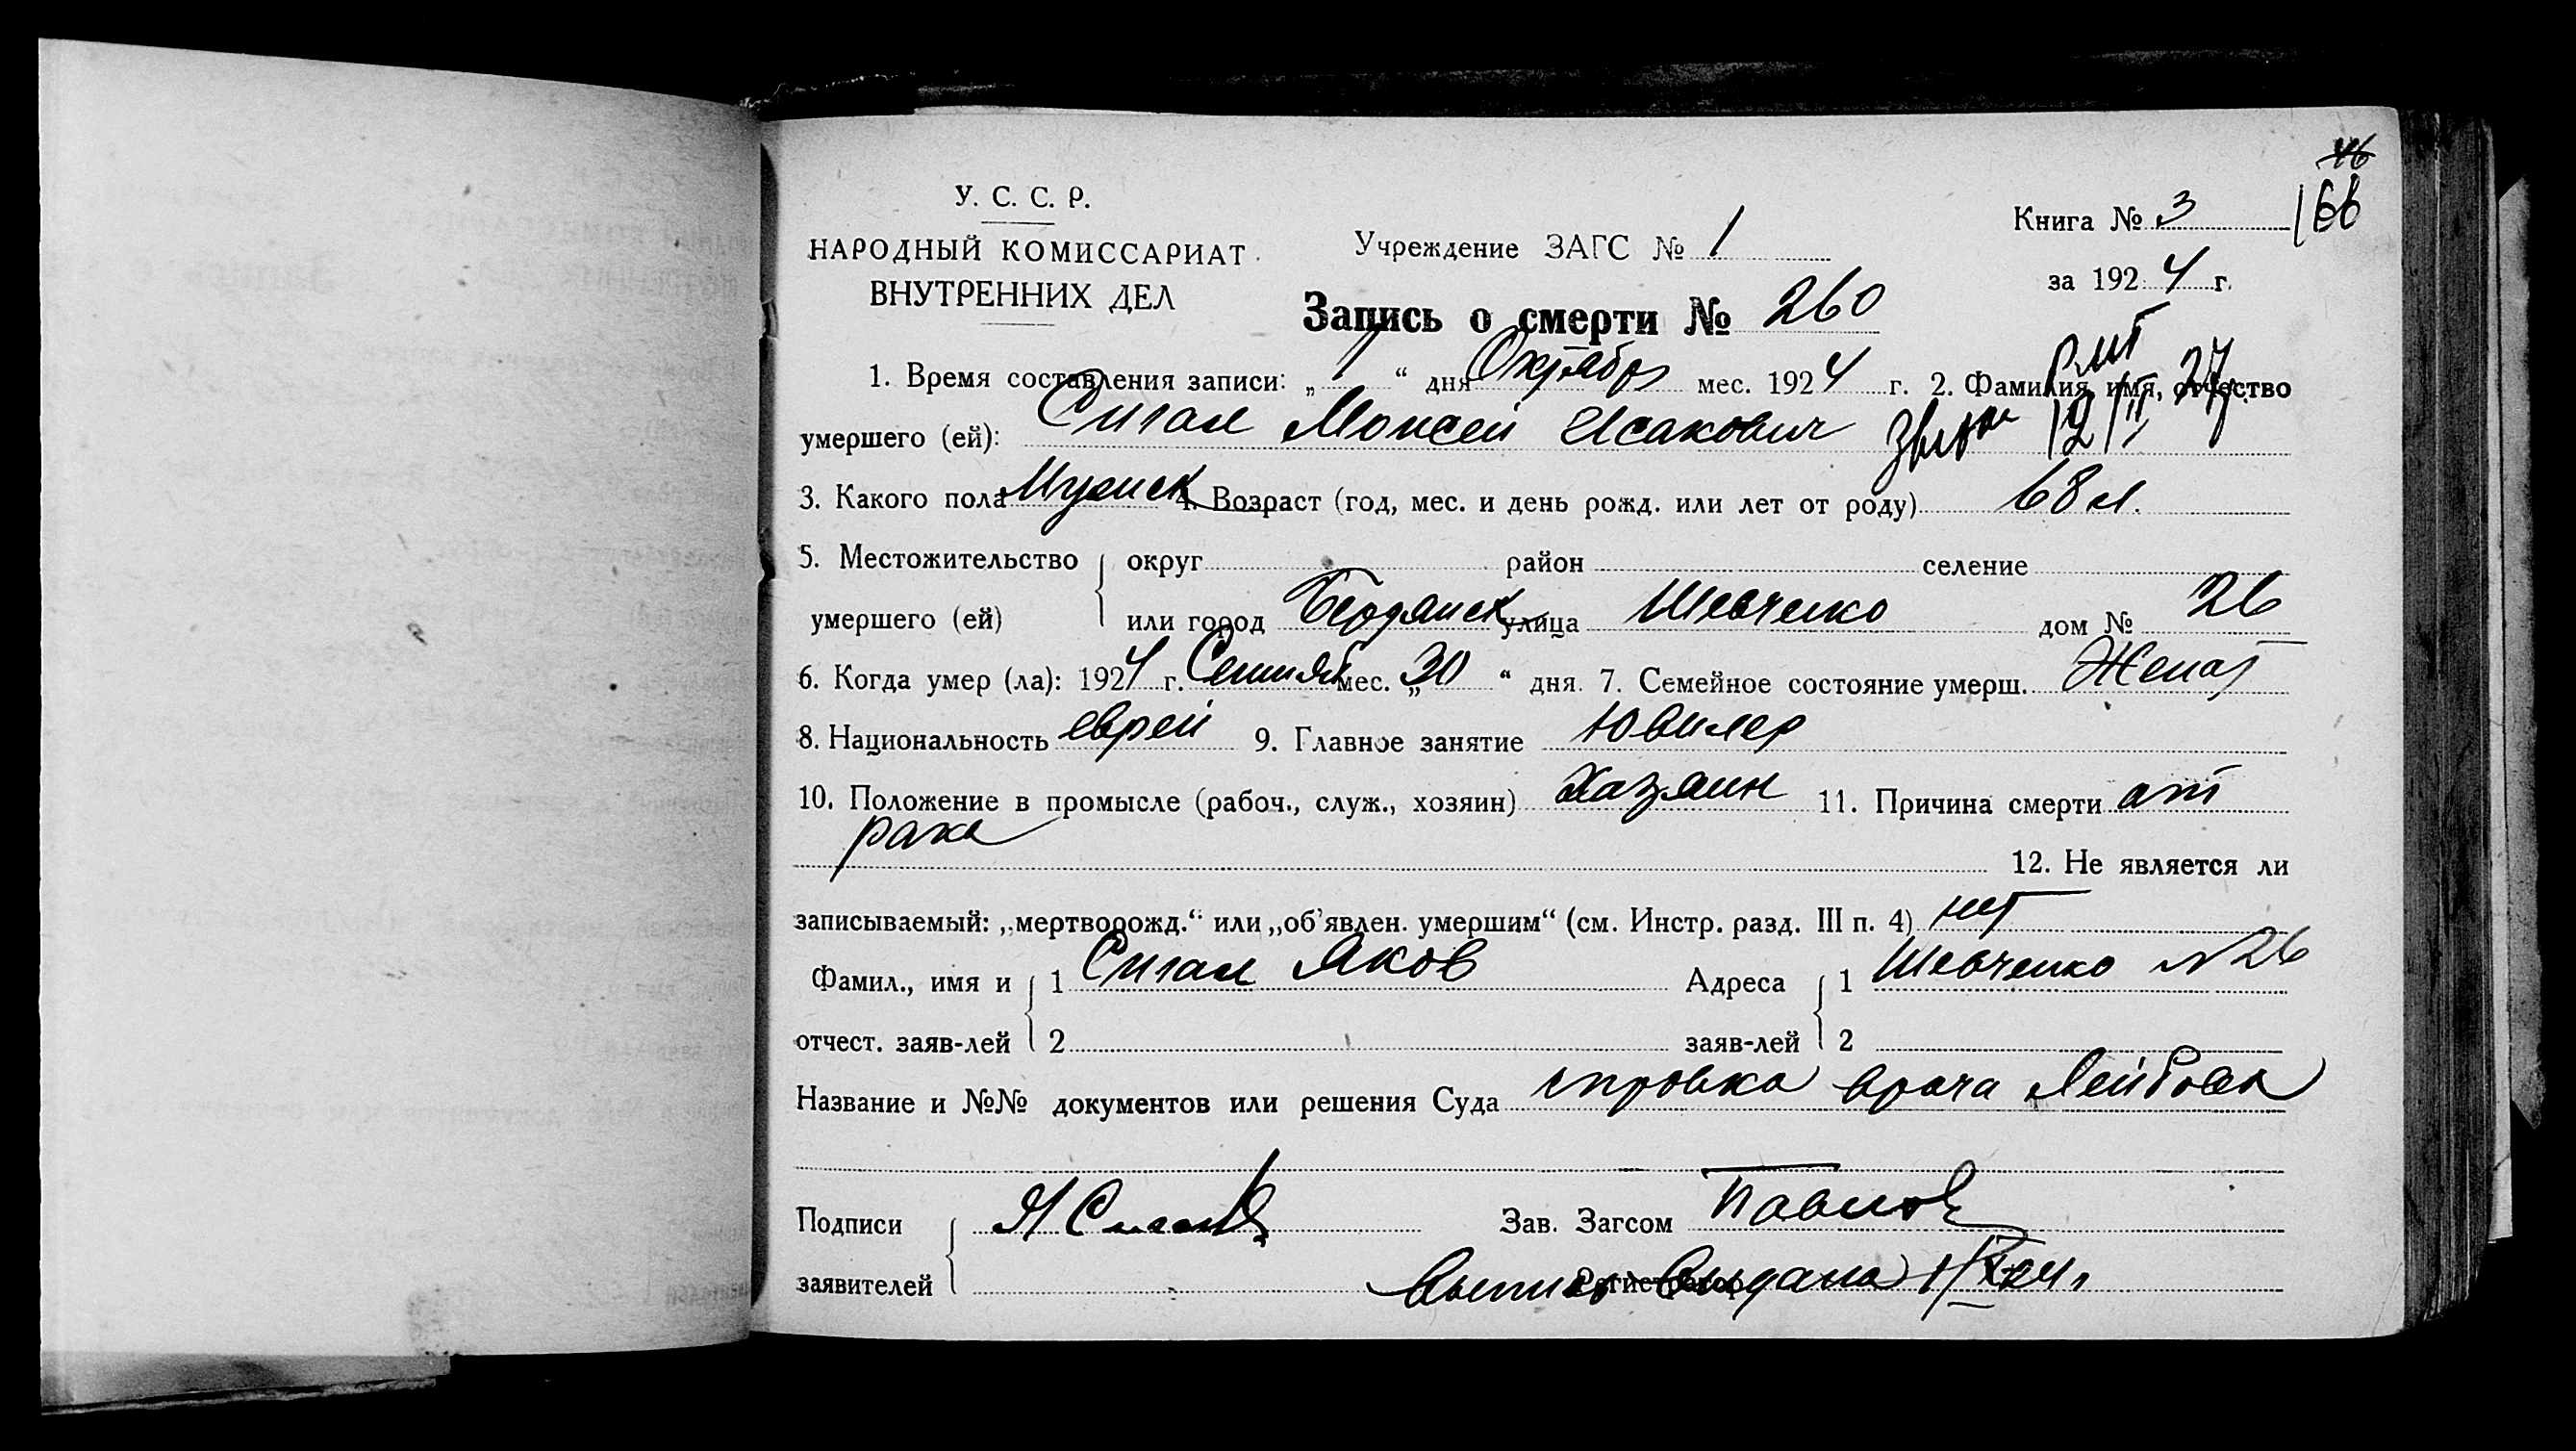 46
166
У. С. С. Р.
НАРОДНЫЙ КОМИССАРИАТ
ВНУТРЕННИХ ДЕЛ
Учреждение ЗАГС № 1
Книга № 3
за 1924 г.
Запись о смерти № 260
1. Время составления записи: „ 1 “ дня Октября мес. 1924 г. 2. Фамилия, имя, отчество
умершего (ей): Сигал Моисей Исакович
3. Какого пола Мужск 4. Возраст (год, мес. и день рожд. или лет от роду) 68 л.
5. Местожительство округ район селение
умершего (ей) или город Бердянск улица Шевченко дом № 26
6. Когда умер (ла): 1924 г. Сентяб мес. „ 30 “ дня. 7. Семейное состояние умерш. Женат
8. Национальность еврей 9. Главное занятие Ювилер
10. Положение в промысле (рабоч., служ., хозяин) Хазяин 11. Причина смерти от
рака
12. Не является ли
записываемый: „мертворожд.“ или „об'явлен. умершим“ (см. Инстр. разд. III п. 4) нет
Фамил., имя и 1 Сигал Яков Адреса 1 Шевченко № 26
отчест. заяв-лей 2 заяв-лей 2
Название и №№ документов или решения Суда справка врача
Подписи Я Сигал Зав. Загсом Павлов
заявителей Регистратор Выпись выдана 1/X-24 г